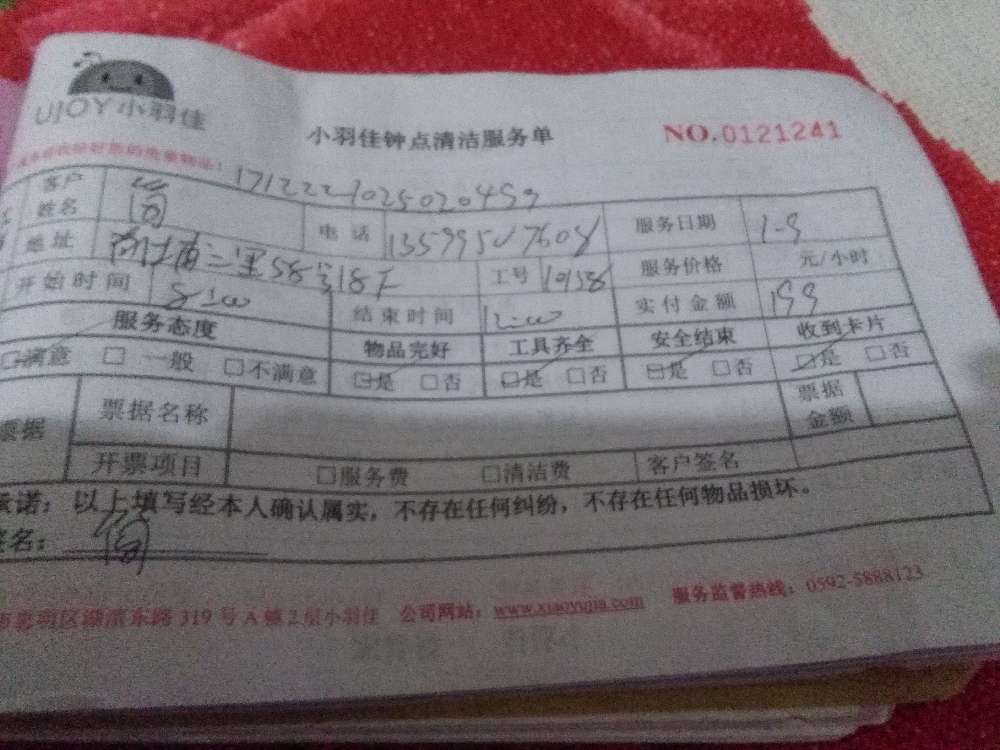 UJOY小羽佳
小羽佳钟点清洁服务单 NO.0121241
171222102502045
客户姓名 电话 服务日期 1-9
地址 工号 服务价格 元/小时
开始时间 8:00 结束时间 12:00 实付金额 199
服务态度 物品完好 工具齐全 安全结束 收到卡片
□满意 □一般 □不满意 □是 □否 □是 □否 □是 □否 □是 □否
票据 票据名称 票据金额
开票项目 □服务费 □清洁费 客户签名
承诺：以上填写经本人确认属实，不存在任何纠纷，不存在任何物品损坏。
签名：
市思明区湖滨东路319号A幢2层小羽佳 公司网站：www.xiaoyujia.com 服务监督热线：0592-5888123